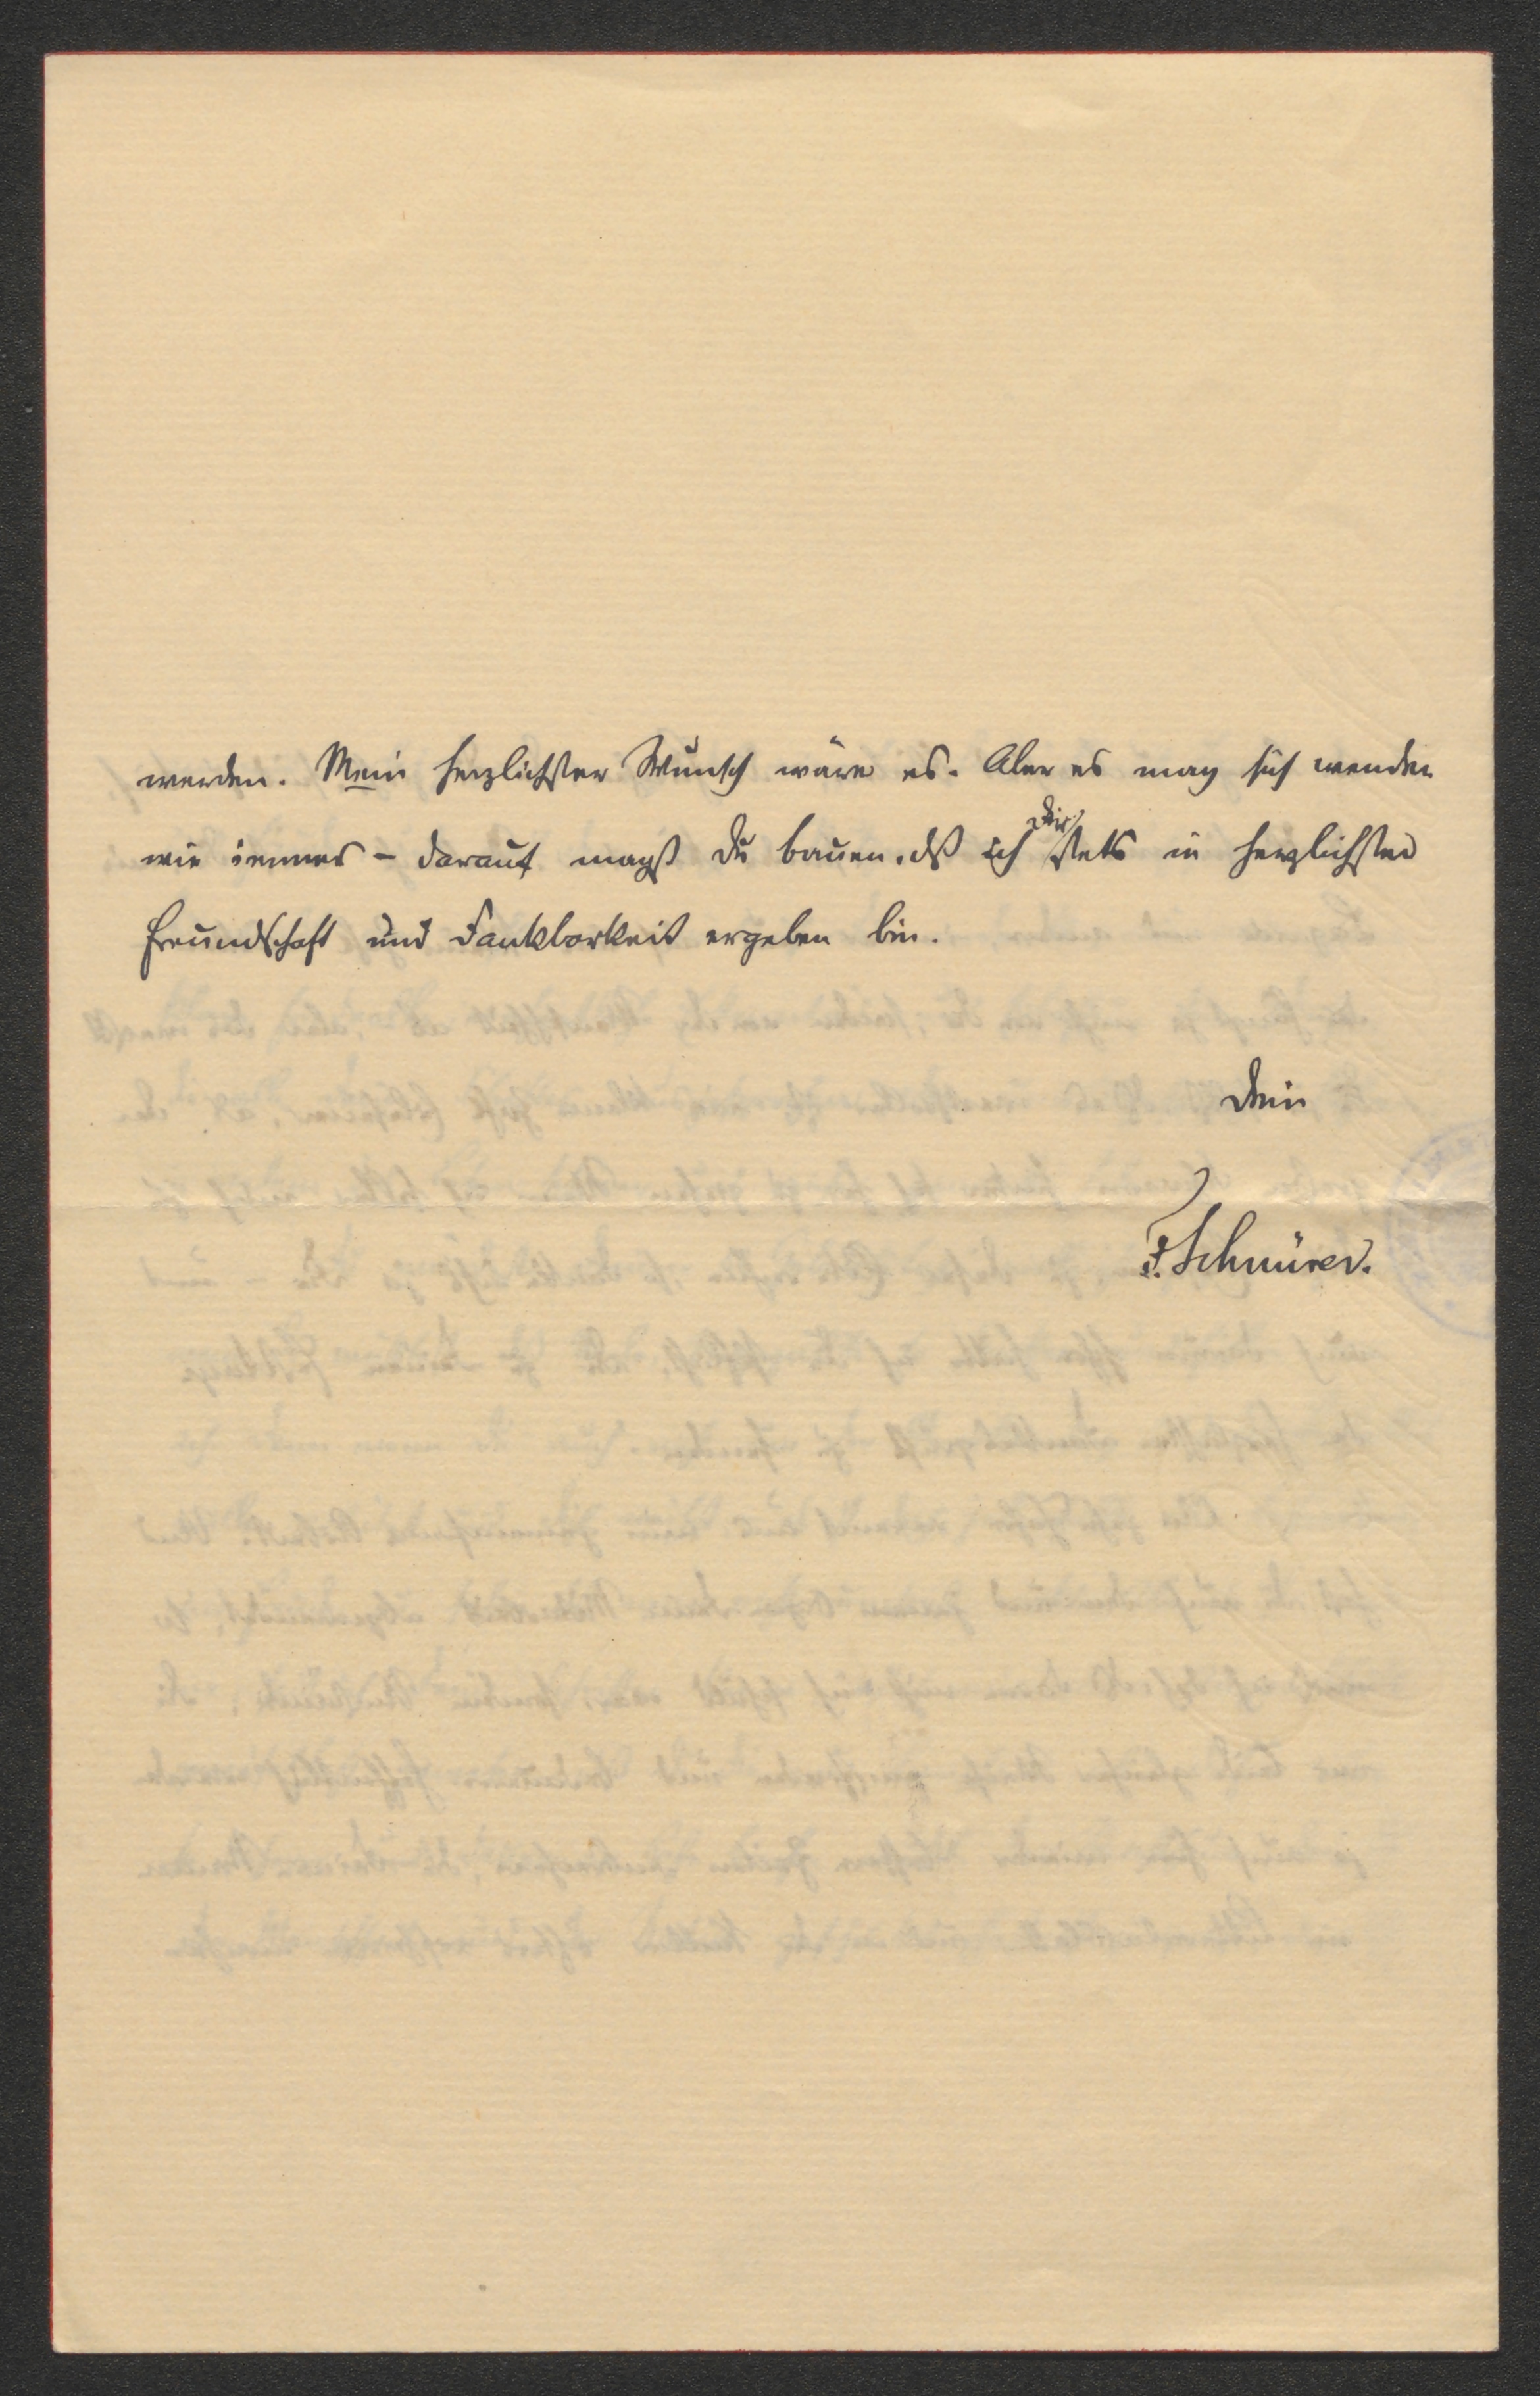 werden. Mein herzlichster Wunsch wäre es. Aber es mag sich wenden
wie immer – darauf magst Du bauen, dß ich Dir stets in herzlichster
Freundschaft und Dankbarkeit ergeben bin.
Dein
F. Schnürer.